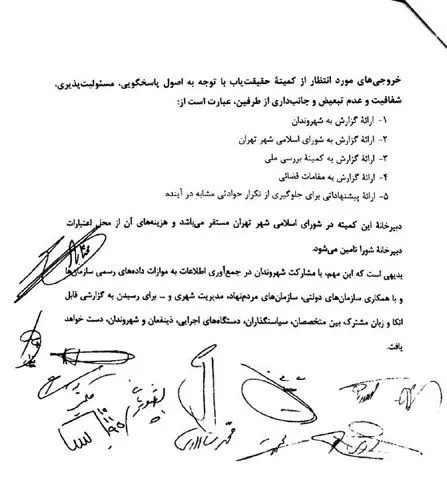 خروجی‌های مورد انتظار از کمیتهٔ حقیقت‌یاب با توجه به اصول پاسخگویی، مسئولیت‌پذیری،
شفافیت و عدم تبعیض و جانب‌داری از طرفین، عبارت است از:
۱- ارائهٔ گزارش به شهروندان
۲- ارائهٔ گزارش به شورای اسلامی شهر تهران
۳- ارائهٔ گزارش به کمیتهٔ بررسی ملی
۴- ارائهٔ گزارش به مقامات قضائی
۵- ارائهٔ پیشنهاداتی برای جلوگیری از تکرار حوادثی مشابه در آینده
دبیرخانهٔ این کمیته در شورای اسلامی شهر تهران مستقر می‌باشد و هزینه‌های آن از محل اعتبارات
دبیرخانهٔ شورا تامین می‌شود.
بدیهی است که این مهم، با مشارکت شهروندان در جمع‌آوری اطلاعات به موازات داده‌های رسمی سازمان‌ها
و با همکاری سازمان‌های دولتی، سازمان‌های مردم‌نهاد، مدیریت شهری و ... برای رسیدن به گزارشی قابل
اتکا و زبان مشترک بین متخصصان، سیاستگذاران، دستگاه‌های اجرایی، ذینفعان و شهروندان، دست خواهد
یافت.